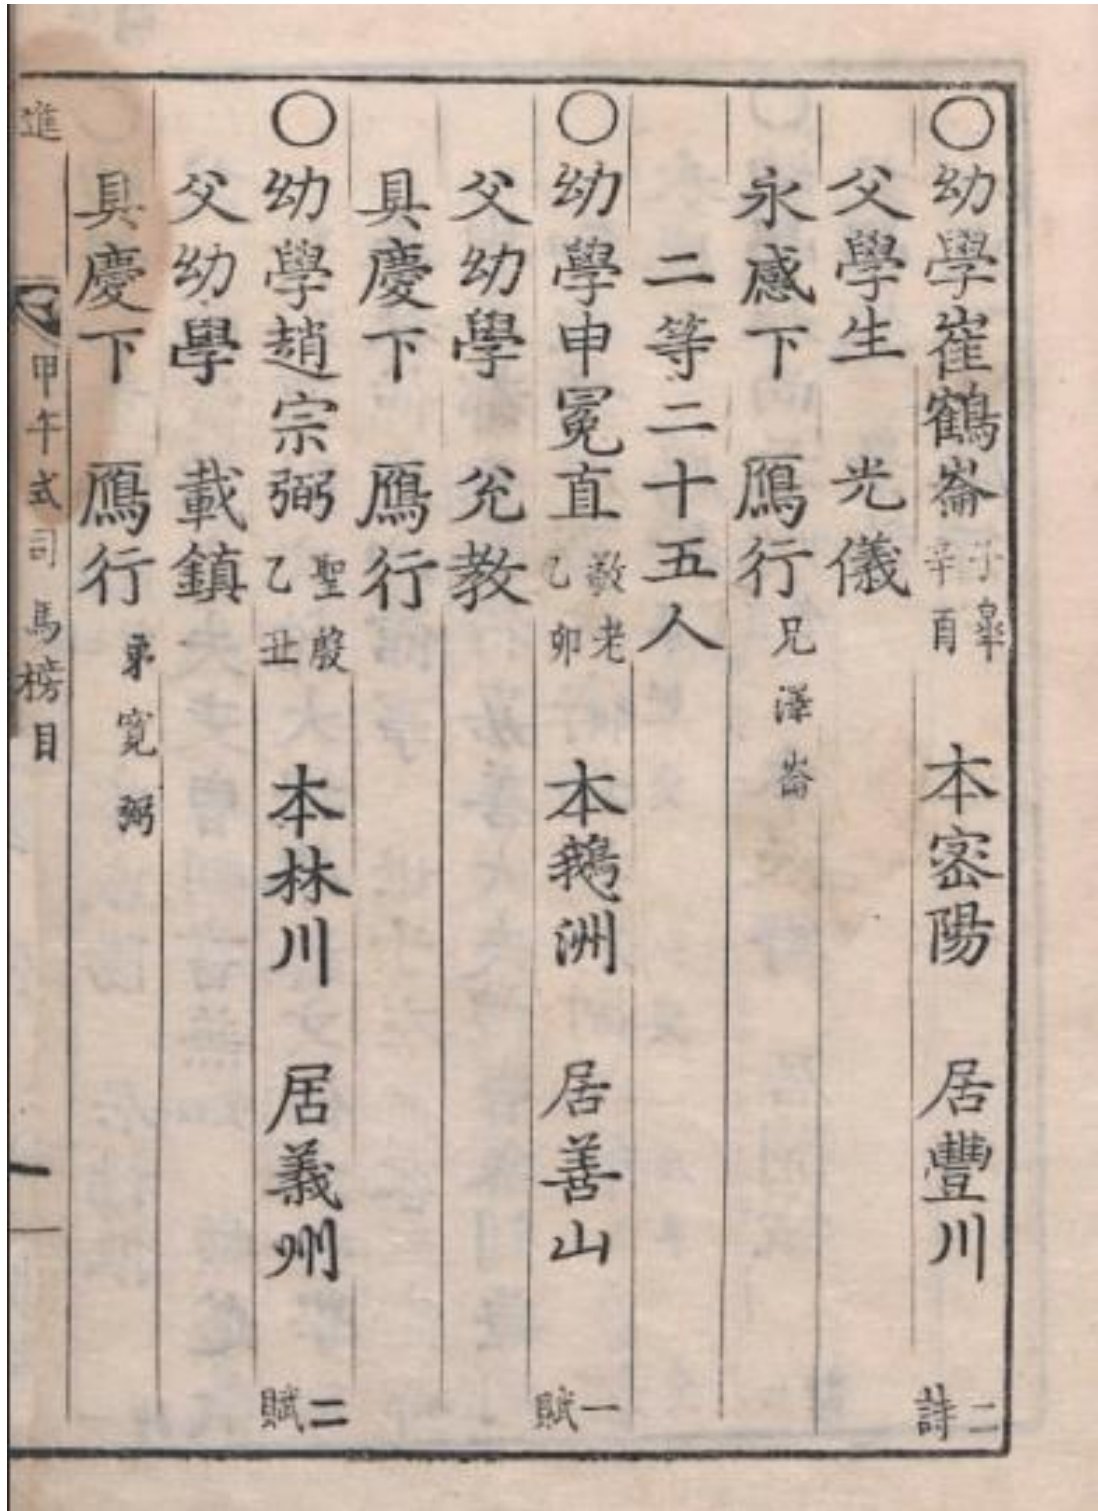 〇幼學崔鶴崙 子皐 辛酉 本密陽 居豐川 二詩
父學生 光儀
永感下 鴈行 兄澤崙
二等二十五人
〇幼學申冕直 敬老 乙卯 本鵝洲 居善山 一賦
父幼學 兊教
具慶下 鴈行
〇幼學趙宗弼 聖殷 乙丑 本林川 居義州 二賦
父幼學 載鎮
具慶下 鴈行 弟寬弼
進 甲午式司馬榜目 一